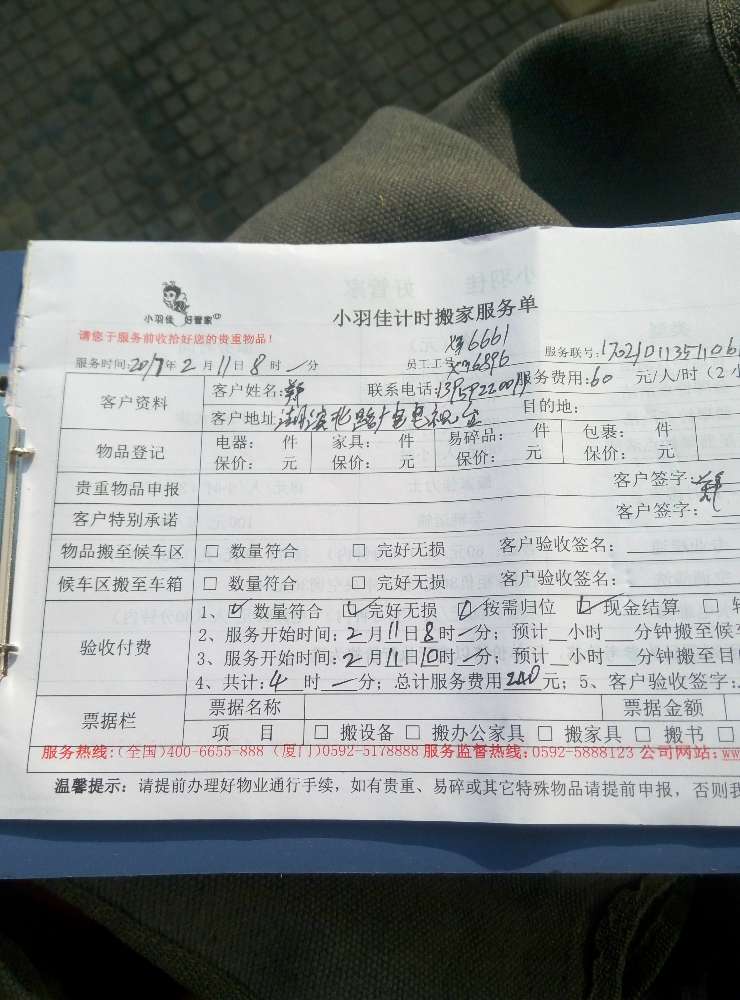 小羽佳 好管家
小羽佳计时搬家服务单
请您于服务前收拾好您的贵重物品!
服务时间:2017年2月11日8时一分 员工工号: 6661 6896 服务联号:170210113511061
客户资料 客户姓名:郑 联系电话: 服务费用:60 元/人/时(2小
客户地址:湖滨北路广电电视台 目的地:
物品登记 电器: 件 家具: 件 易碎品: 件 包裹: 件
保价: 元 保价: 元 保价: 元 保价: 元
贵重物品申报 客户签字:郑
客户特别承诺 客户签字:
物品搬至候车区 □ 数量符合 □ 完好无损 客户验收签名:
候车区搬至车箱 □ 数量符合 □ 完好无损 客户验收签名:
验收付费 1、☑数量符合 ☑完好无损 ☑按需归位 ☑现金结算 □
2、服务开始时间:2月11日8时一分;预计__小时__分钟搬至候车
3、服务开始时间:2月11日10时一分;预计__小时__分钟搬至目
4、共计:4时一分;总计服务费用240元;5、客户验收签字:
票据栏 票据名称 票据金额
项 目 □ 搬设备 □ 搬办公家具 □ 搬家具 □ 搬书 □
服务热线:(全国)400-6655-888 (厦门)0592-5178888 服务监督热线:0592-5888123 公司网站:ww
温馨提示:请提前办理好物业通行手续,如有贵重、易碎或其它特殊物品请提前申报,否则我